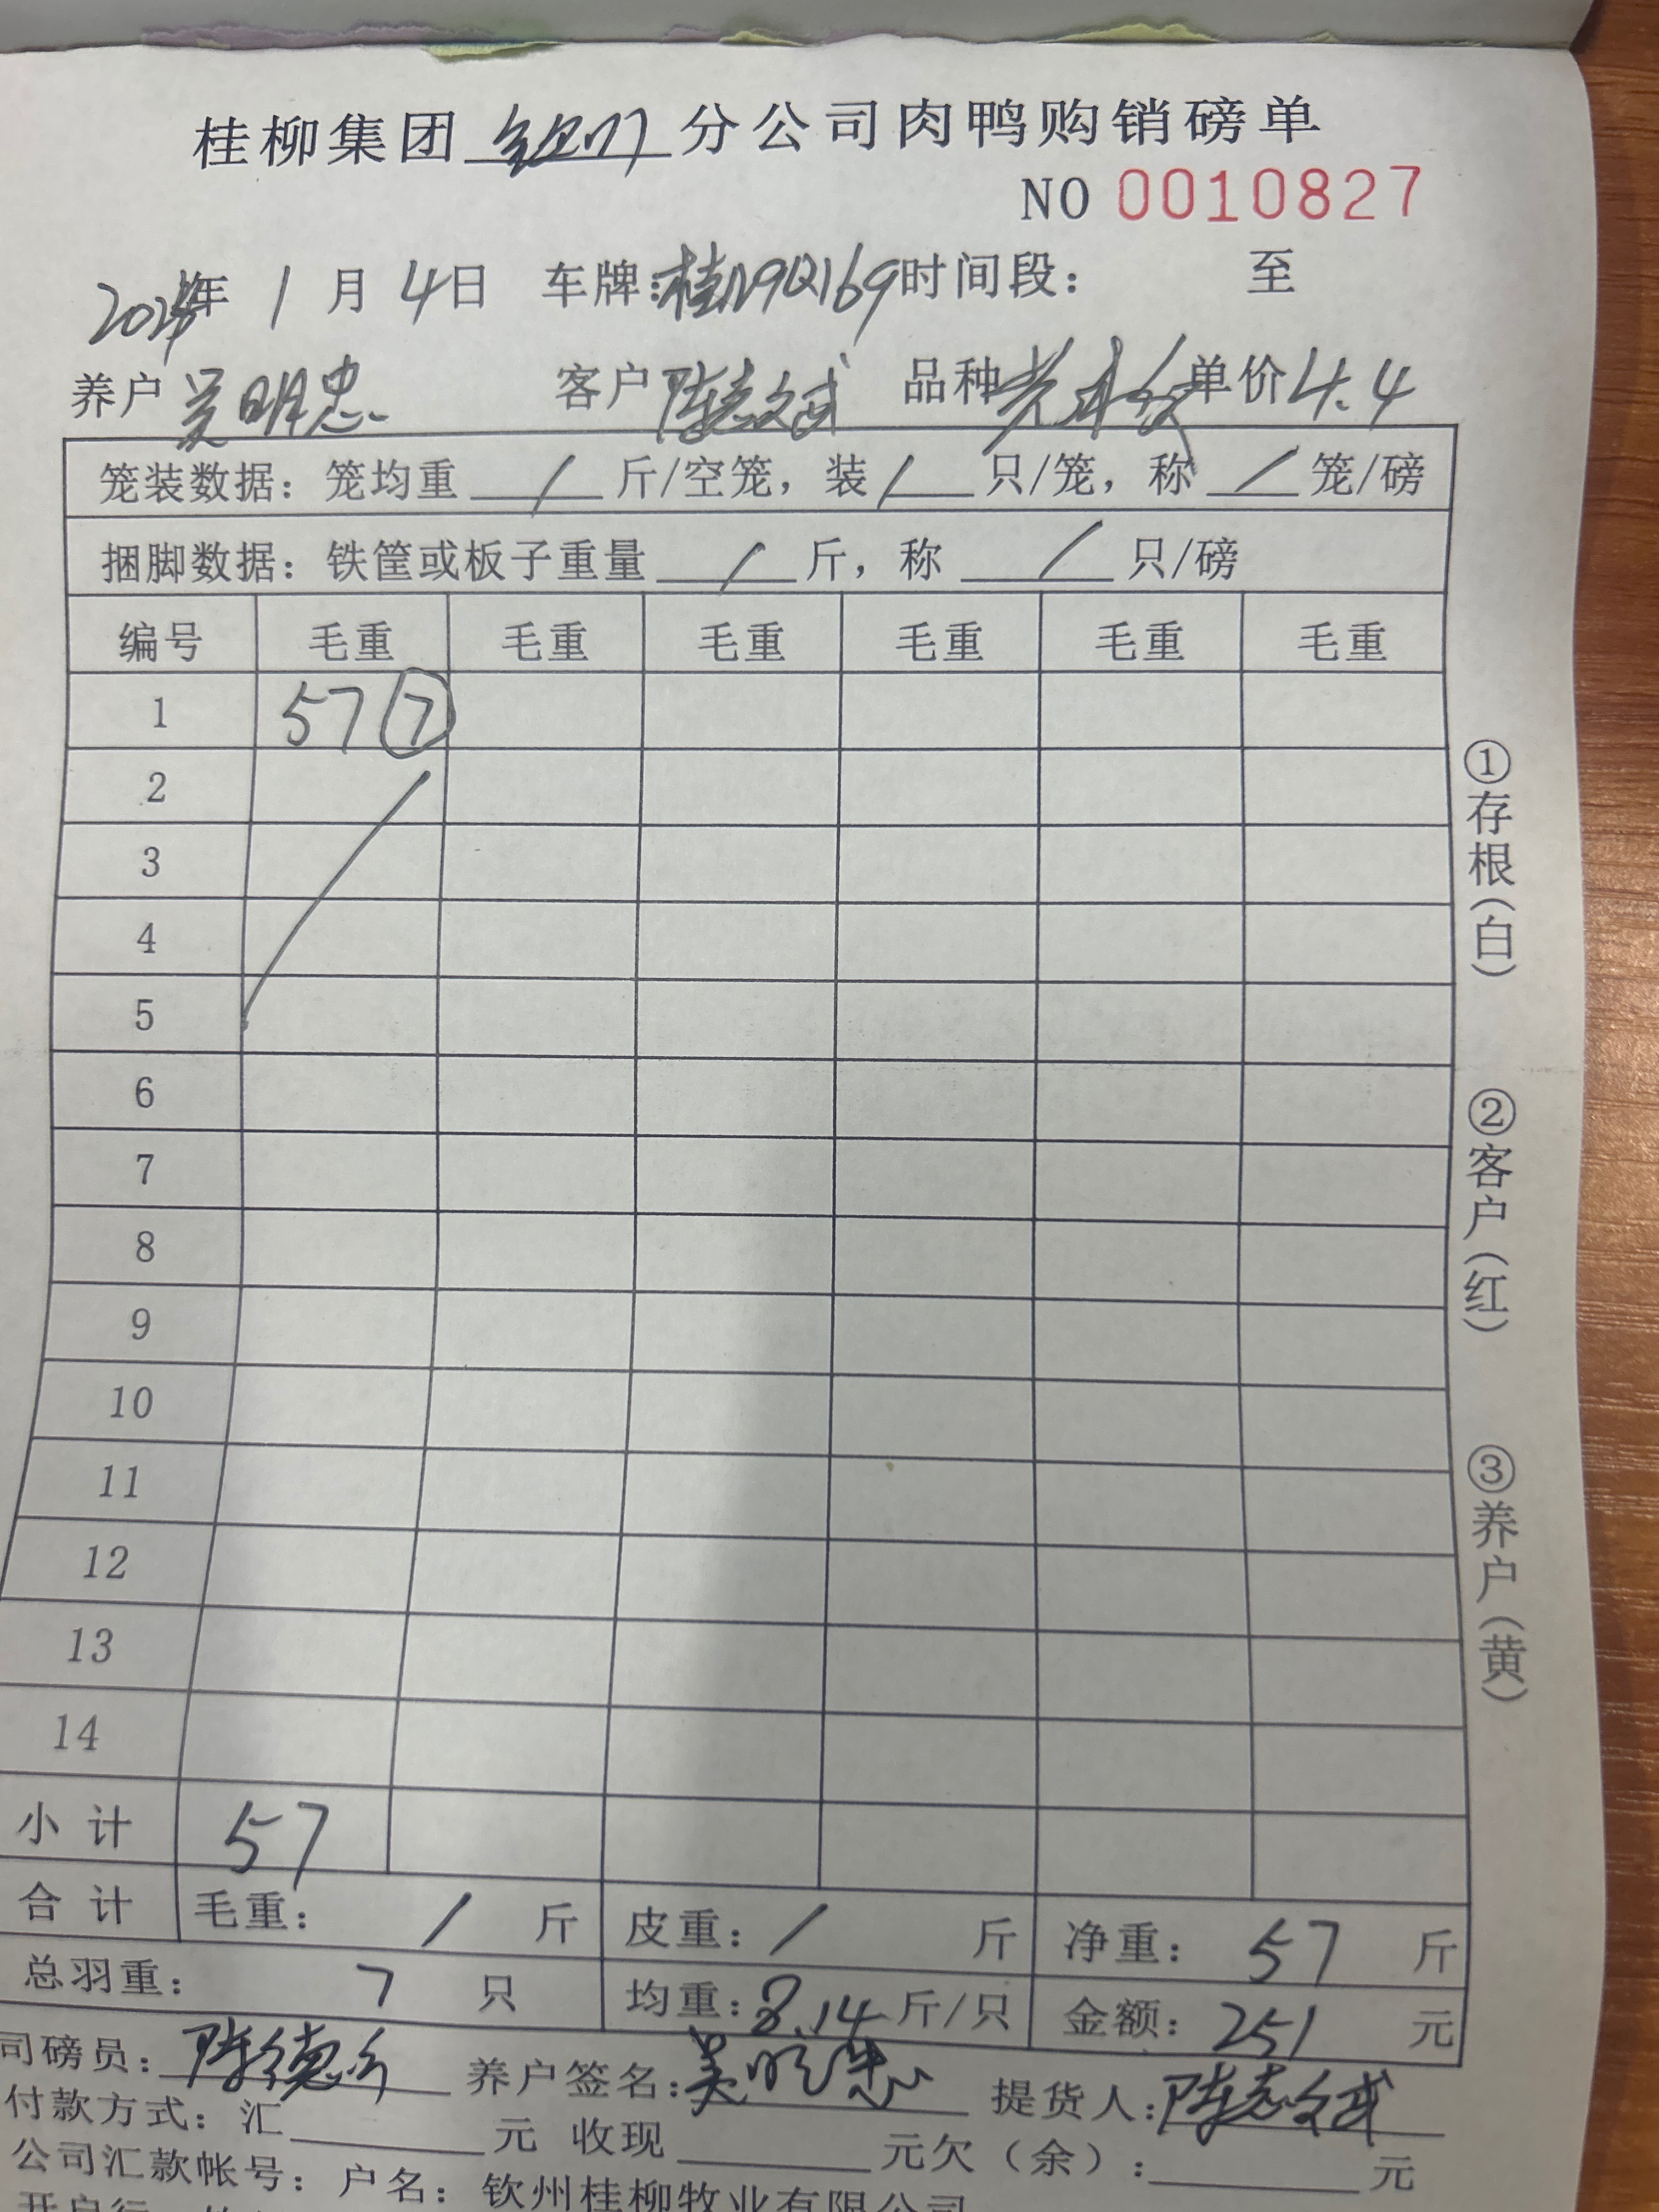 桂柳集团 分公司肉鸭购销磅单
NO 0010827
年 1 月 4 日 车牌:桂N9Q169 时间段: 至
养户 吴明忠 客户 陈志斌 品种 单价 4.4
笼装数据: 笼均重 / 斤/空笼, 装 / 只/笼, 称 / 笼/磅
捆脚数据: 铁筐或板子重量 / 斤, 称 / 只/磅
编号 毛重 毛重 毛重 毛重 毛重 毛重
1 57 ⑦
2
3
4
5
6
7
8
9
10
11
12
13
14
小计 57
合计 毛重: / 斤 皮重: / 斤 净重: 57 斤
总羽重: 7 只 均重: 8.14 斤/只 金额: 251 元
司磅员: 养户签名: 吴明忠 提货人: 陈志斌
付款方式: 汇 元 收现 元欠(余): 元
公司汇款帐号: 户名: 钦州桂柳牧业有限公司
①存根(白)
②客户(红)
③养户(黄)